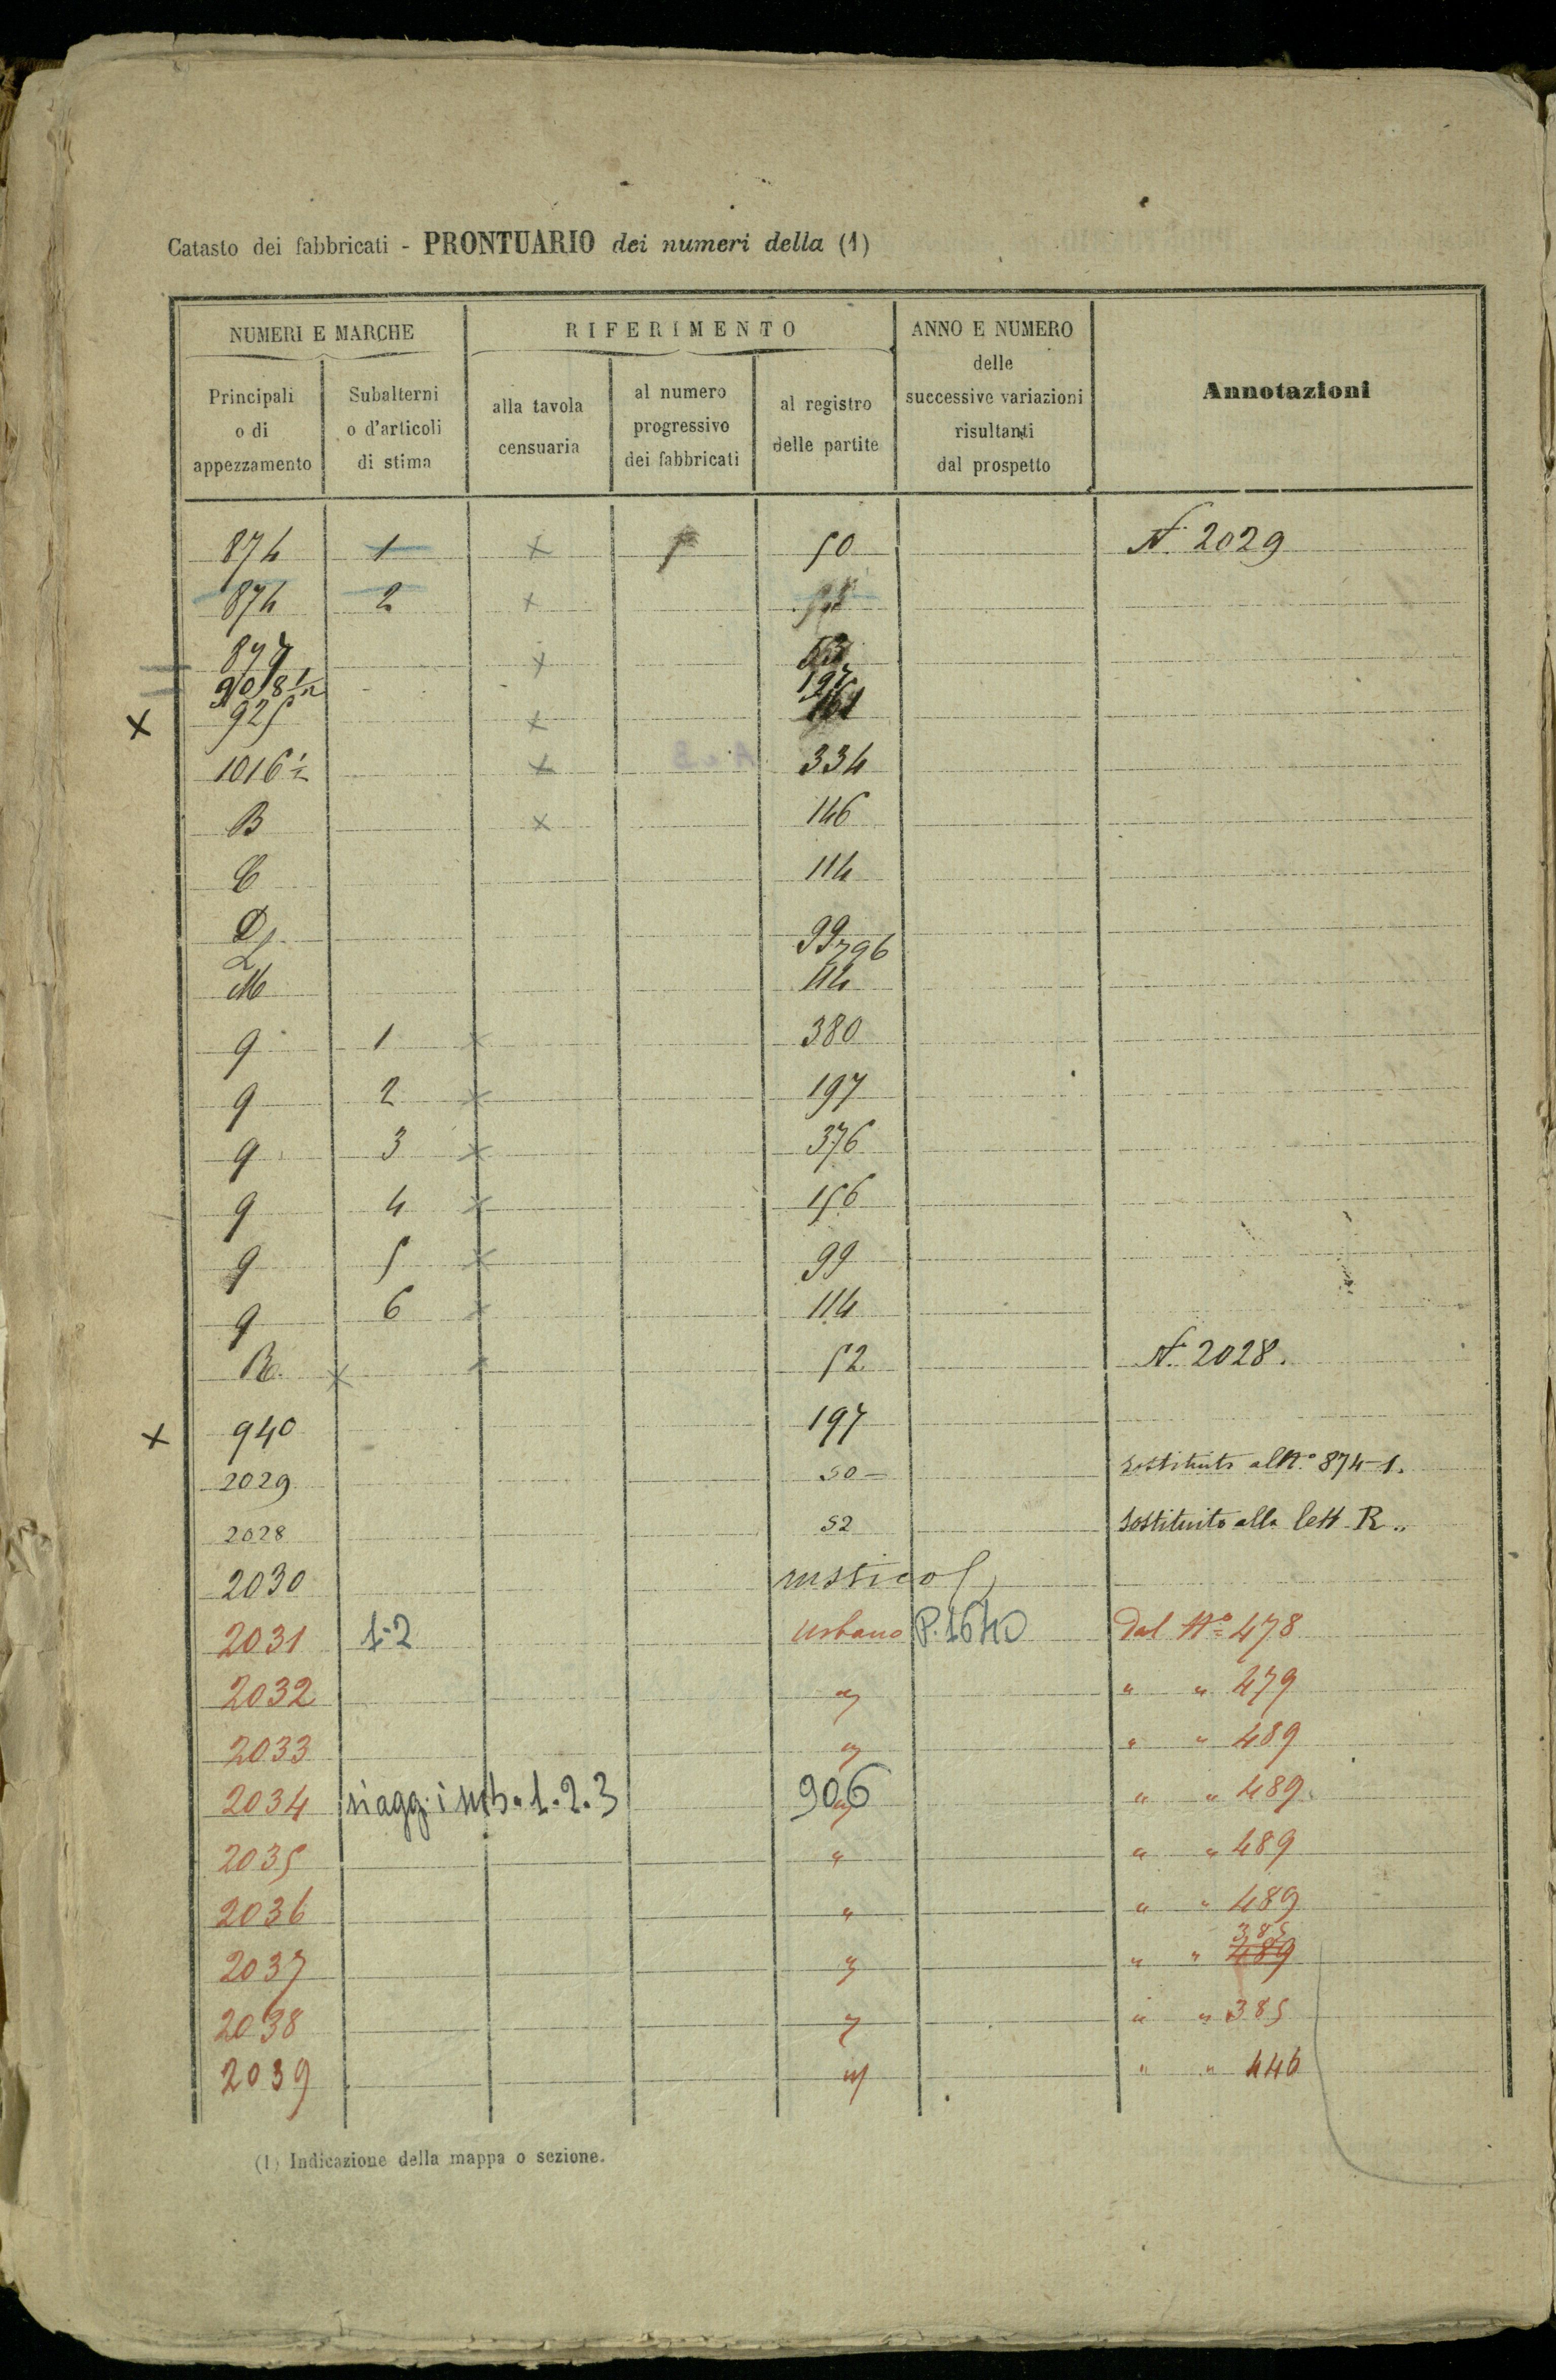 Catasto dei fabbricati - PRONTUARIO dei numeri della (1)
NUMERI E MARCHE
RIFERIMENTO
ANNO E NUMERO
delle
successive variazioni
risultanti
dal prospetto
Annotazioni
Principali
o di
appezzamento
Subalterni
o d'articoli
di stima
alla tavola
censuaria
al numero
progressivo
dei fabbricati
al registro
delle partite
874 1 x 50 N. 2029
874 2 x
877 x
908 1/2 197
x 925 x 161
1016 1/2 x 334
B x 146
C 114
D 99
L 796
M 114
q 1 x 380
q 2 x 197
q 3 x 376
q 4 x 156
q 5 x 99
q 6 x 114
R x 52 N. 2028.
x 940 197
2029 50 - sostituito al N.° 874-1.
2028 52 sostituito alla lett R..
2030 rustico
2031 1-2 urbano P. 1640 Dal N° 478
2032 " " " 479
2033 " " " 489
2034 riagg. i sub. 1.2.3 906 " " " 489
2035 " " " 489
2036 " " " 489
385
2037 " " " 489
2038 " " " 385
2039 " " " 446
(1) Indicazione della mappa o sezione.